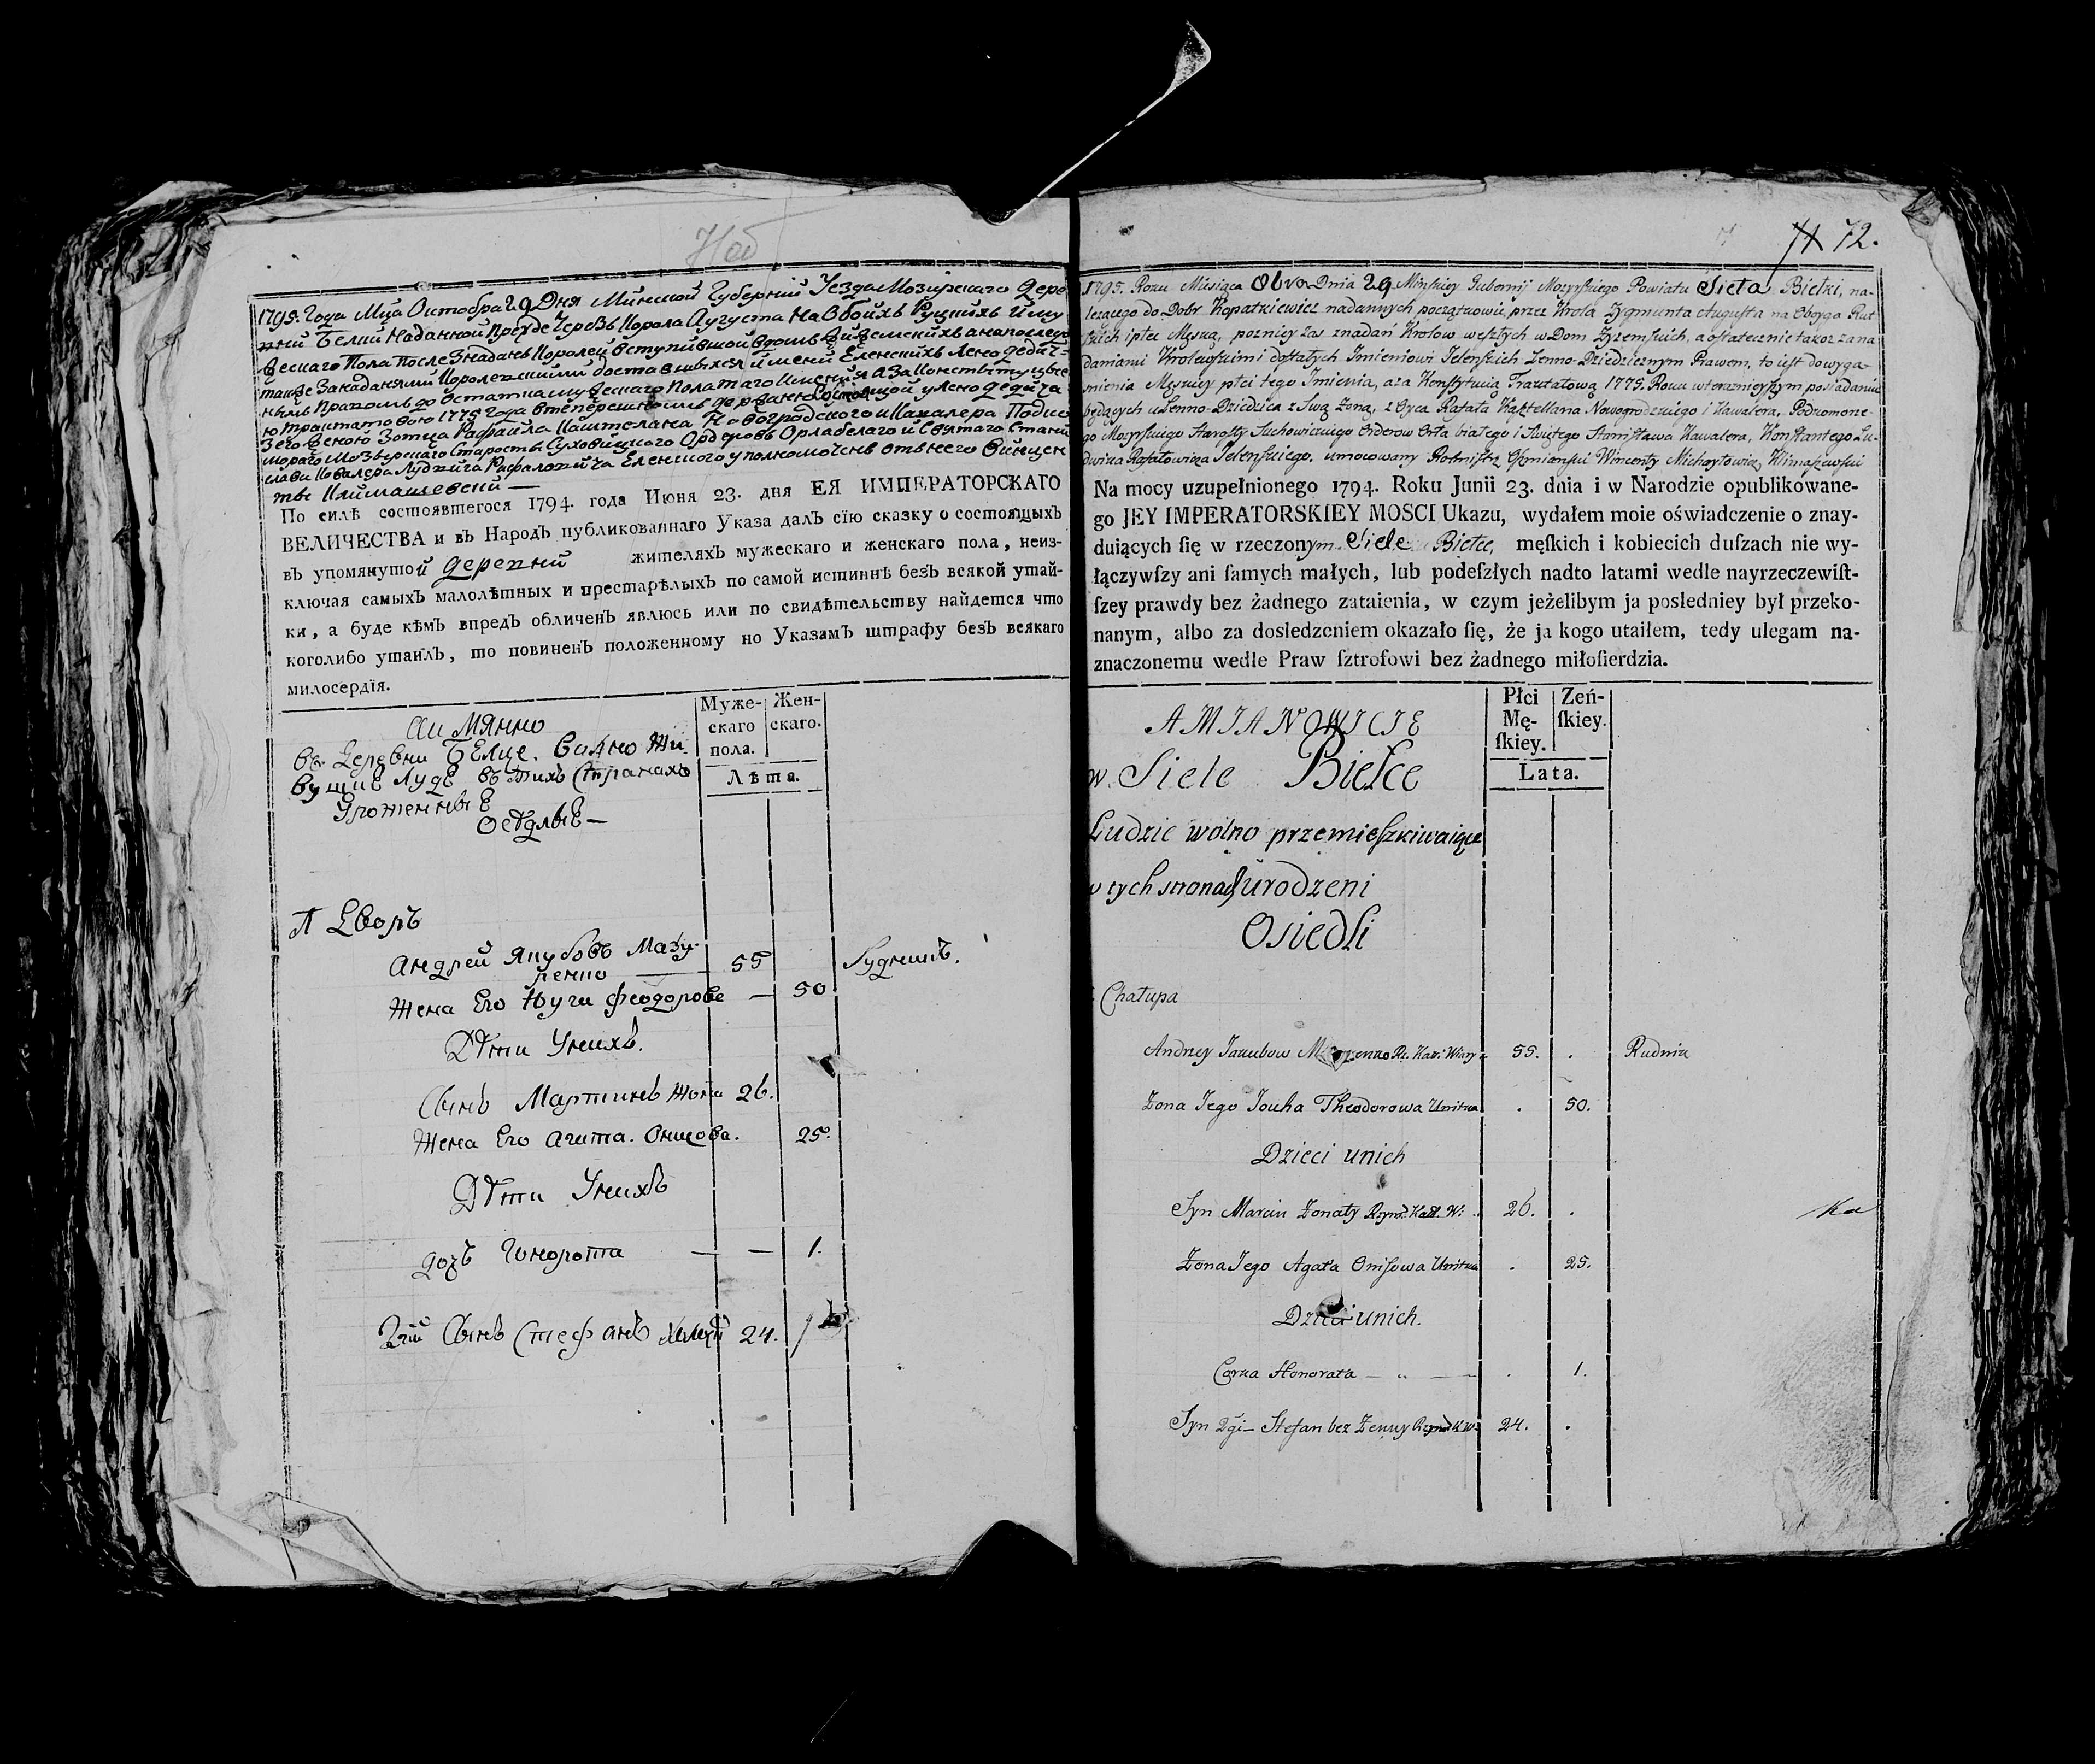 71об
1795. Года Мца Октобра 29 Дня Минской Губерний Уезда Мозирского Дере
вний Белки Наданной Прежде Черезъ Короля Аугуста На Обойхъ Руцкихъ Иму
ческаго Пола После Знаданъ Королей Вступившой Вдомъ
также Занаданями Королевскими доставшихся Именй Еленскихъ Лено дедич-
нымъ Правомъ до Остатка мужескаго Пола того Имения А За Конституцые
ю трактатовою 1775 Года Втеперешномъ держаню Состоящой у Лено Дедича
Зего Женою Зотца Рафаила Каштеляна Новогродского и Кавалера Подко
морого Мозырскаго Старосты Суховицкого Ордеровъ Орлабелаго и Святаго Стани
слава Ковалера Лудвига Рафаловича Еленского уполномоченъ отънего Винцен
ты Климашевский —
По силѣ состоявшегося 1794. года Июня 23. дня ЕЯ ИМПЕРАТОРСКАГО
ВЕЛИЧЕСТВА и въ Народъ публикованнаго Указа далъ сїю сказку о состоящыхъ
въ упомянутой деревни жителяхъ мужескаго и женскаго пола, неиз-
ключая самыхъ малолѣтных и престарѣлыхъ по самой истиннѣ безъ всякой утай-
ки, а буде кѣмъ впредъ обличенъ явлюсь или по свидѣтельству найдется что
коголибо утаилъ, то повиненъ положенному по Указамъ штрафу безъ всякаго
милосердїя.
Муже-
скаго
пола.
Жен-
скаго.
Лѣта.
Аимянно
въ Деревни Белце. Волно Жи
вущиЕ ЛудЕ въ тихъ Странахъ
УроженныЕ
ОсѣдлыЕ —
1 Дворъ
Андрей Якубовъ Мазу-
ренко — 55 Рудникъ.
Жена Его Юуга Феодорова — 50
Дѣти Унихъ.
Сынъ Мартинъ Жона 26.
Жена Его Агата. Онисова. 25.
Дѣти Унихъ
дочь Гонората — — 1.
2гий Сынъ Стефанъ 24.
71 72.
1795. Roku Miesiąca 8bra Dnia 29 Minskiey Gubernij Mozyrskiego Powiatu Sieła Bielki, na-
leżącego do Dobr Kopatkiewicz nadannych początkowie, przez Krola Zygmunta Augusta na Oboyga Rut
skich i płci Męską, pozniey zas znadań Krolow weszłych w Dom Zyzemskich, a ostatecznie takoż zana
daniami Krolewskimi dostałych Imieniowi Jelenskich Lenno-Dziedzicznym Prawem, to iest dowyga-
śnienia Męskiey płci tego Imienia, a za Konstytucią Traktatową 1775. Roku wteraznieyszym posiadaniu
będących u Lenno-Dziedzica z Swą Zoną, z Oyca Rafała Kasztellana Nowogrodzkiego i Kawalera, Podkomorze-
go Mozyrskiego Starosty Suchowickiego Orderow Orła białego i Swiętego Stanisława Kawalera, Konstantego Lu-
dwika Rafałowicza Jelenskiego, umocowany Rotmistrz Oszmianski Wincenty Michayłowicz Klimaszewski
Na mocy uzupełnionego 1794. Roku Junii 23. dnia i w Narodzie opublikowane-
go JEY IMPERATORSKIEY MOSCI Ukazu, wydałem moie oświadczenie o znay-
duiących ſię w rzeczonym Siele Bielce, męſkich i kobiecich duſzach nie wy-
łączywſzy ani ſamych małych, lub podeſzłych nadto latami wedle nayrzeczewiſt-
ſzey prawdy bez żadnego zataienia, w czym jeżelibym ja posledniey był przeko-
nanym, albo za dosledzeniem okazało ſię, że ja kogo utaiłem, tedy ulegam na-
znaczonemu wedle Praw ſztrofowi bez żadnego miłoſierdzia.
Płci
Mę-
ſkiey.
Zeń-
ſkiey.
Lata.
AMIANOWICIE
w Siele Bielce
Ludzie wolno przemieszkiwaiące
w tych stronach urodzeni
Osiedli
Chałupa
Andrzey Jakubow Mazurenko Rz. Kat: Wiary 55. . Rudnik
Zona Jego Jouha Theodorowa Unitka . 50.
Dzieci unich
Syn Marcin Zonaty Rzyms. Katt. W: 26. .
Zona Jego Agata Onisowa Unitka . 25.
Dzieci unich.
Corka Honorata — „ — — . 1.
Syn 2gi — Stefan bez Zenny Rzyms K W. 24. .